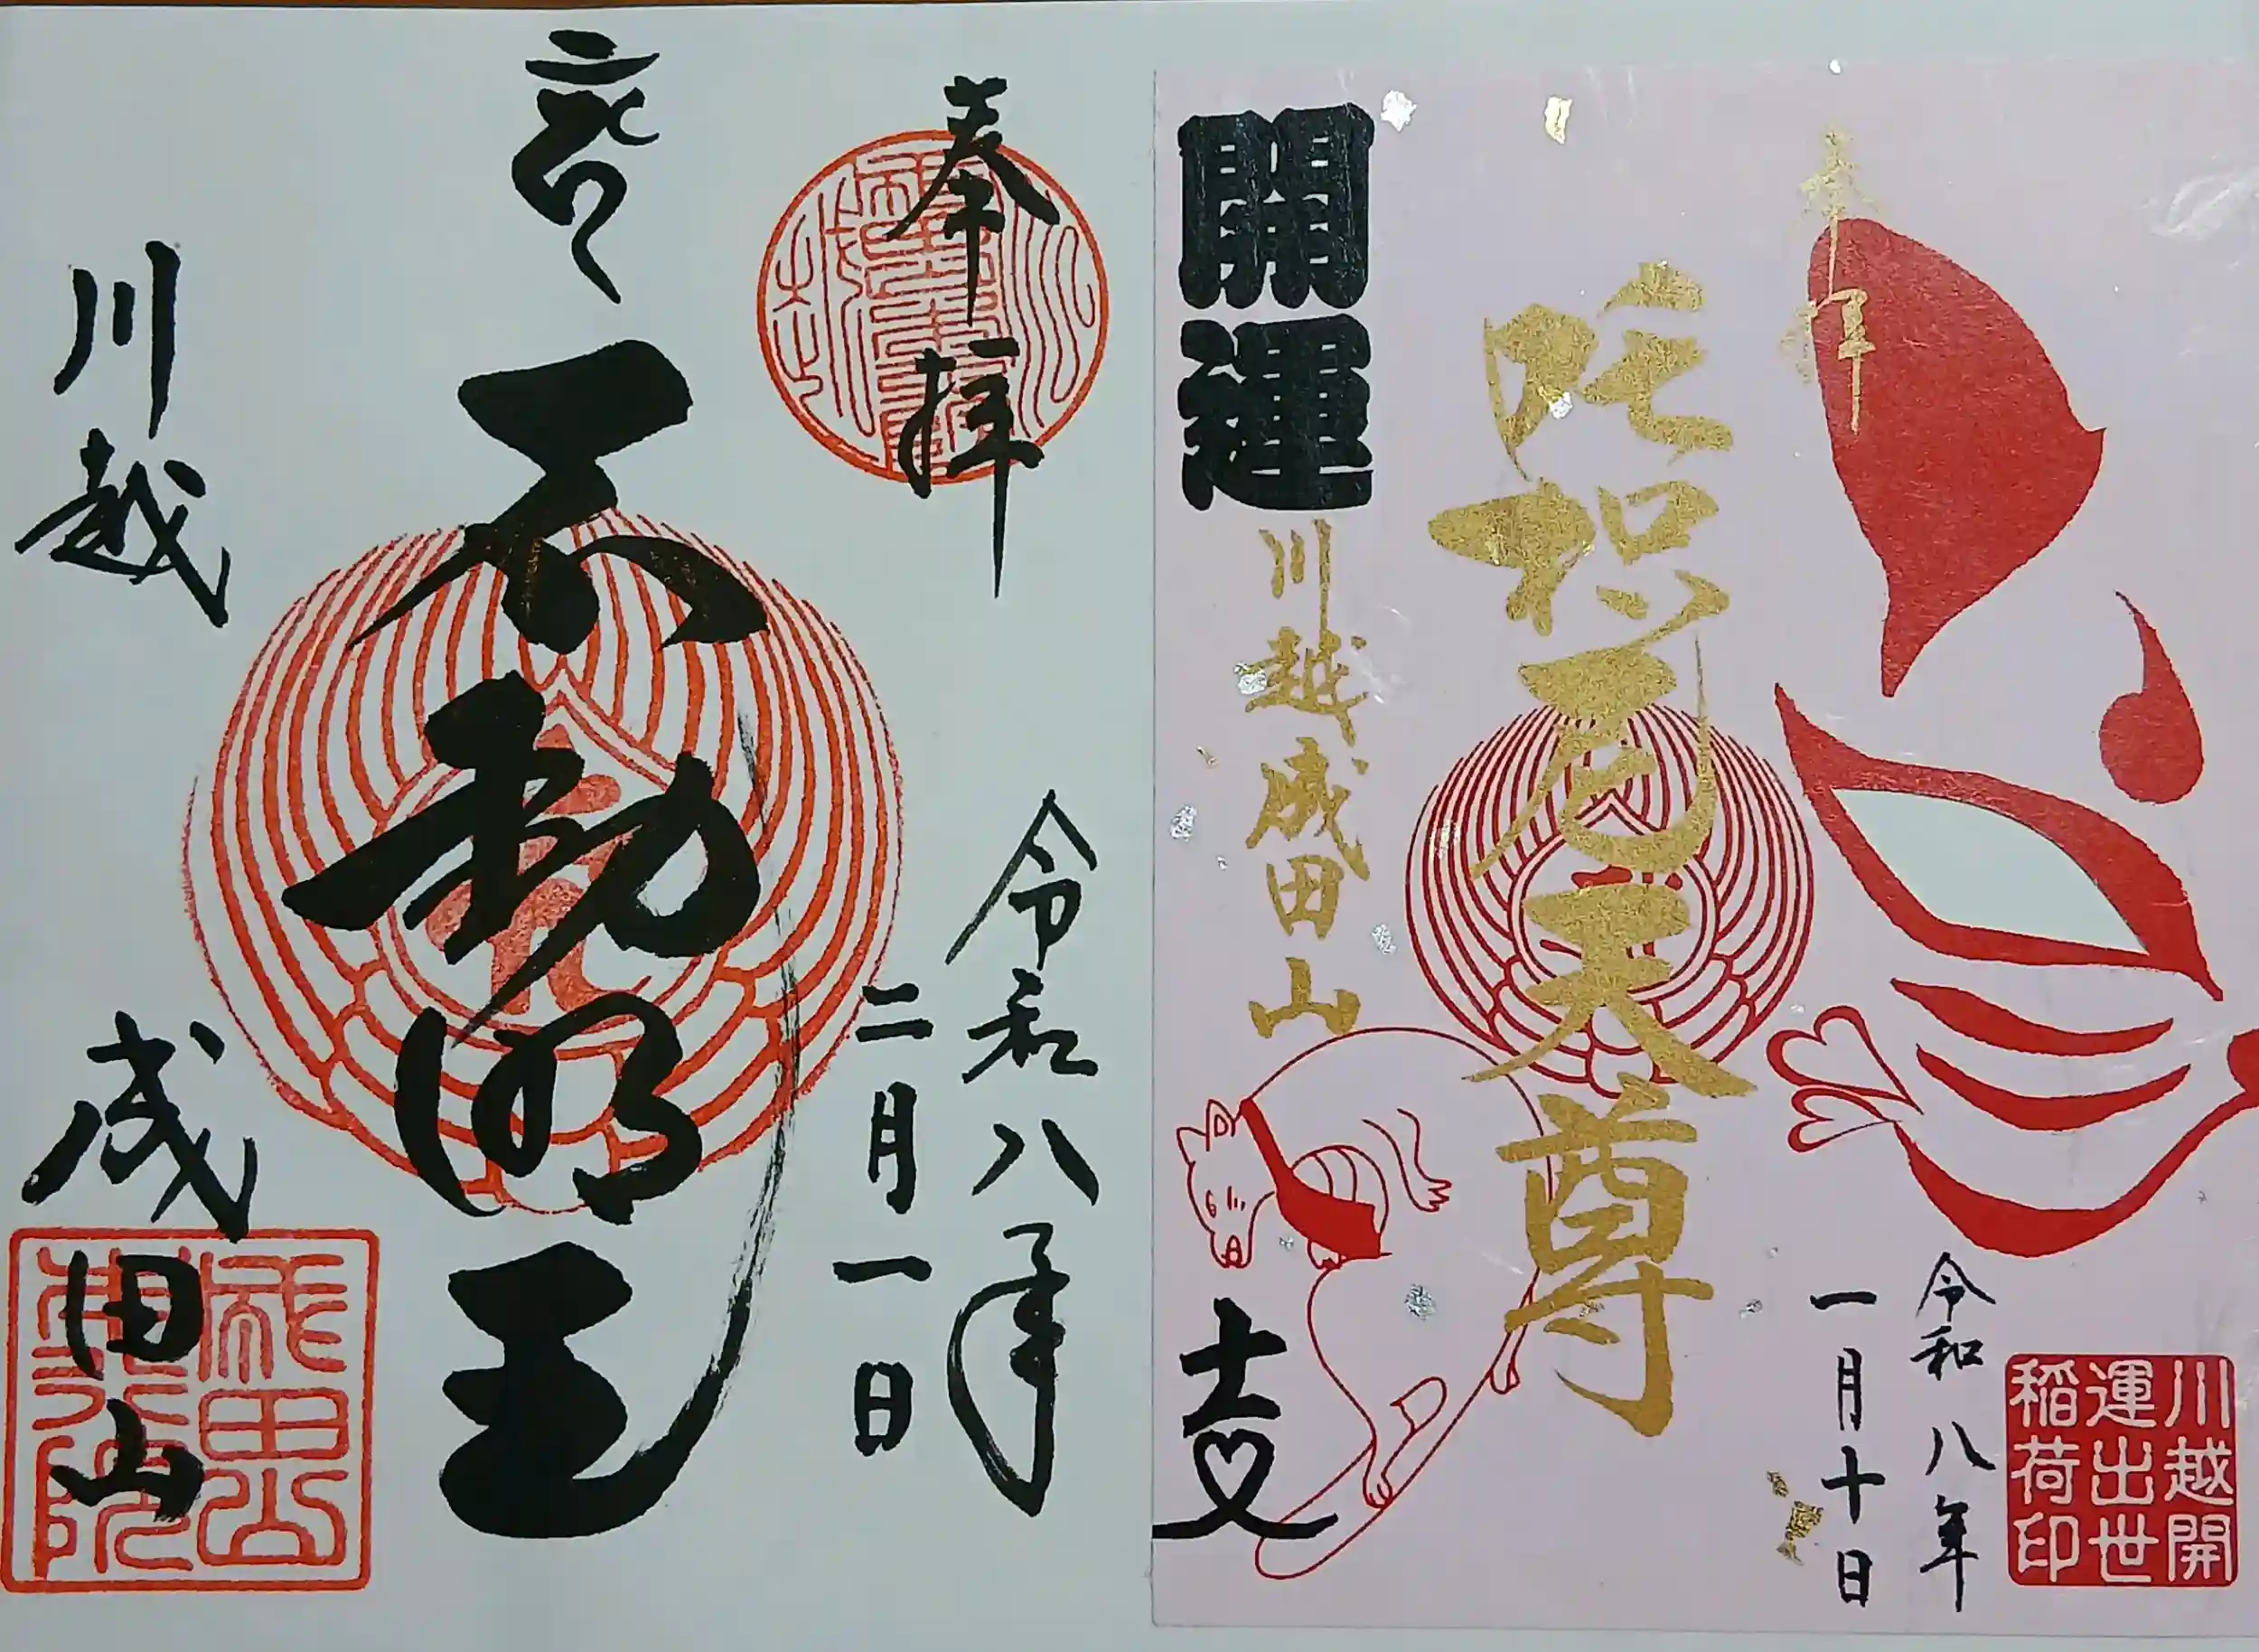 奉拝
令和八年
二月一日
不動明王
川越
成田山
成田山
奉拝
吒枳尼天尊
開運
川越成田山
令和八年
一月十日
川越開
運出世
稲荷印